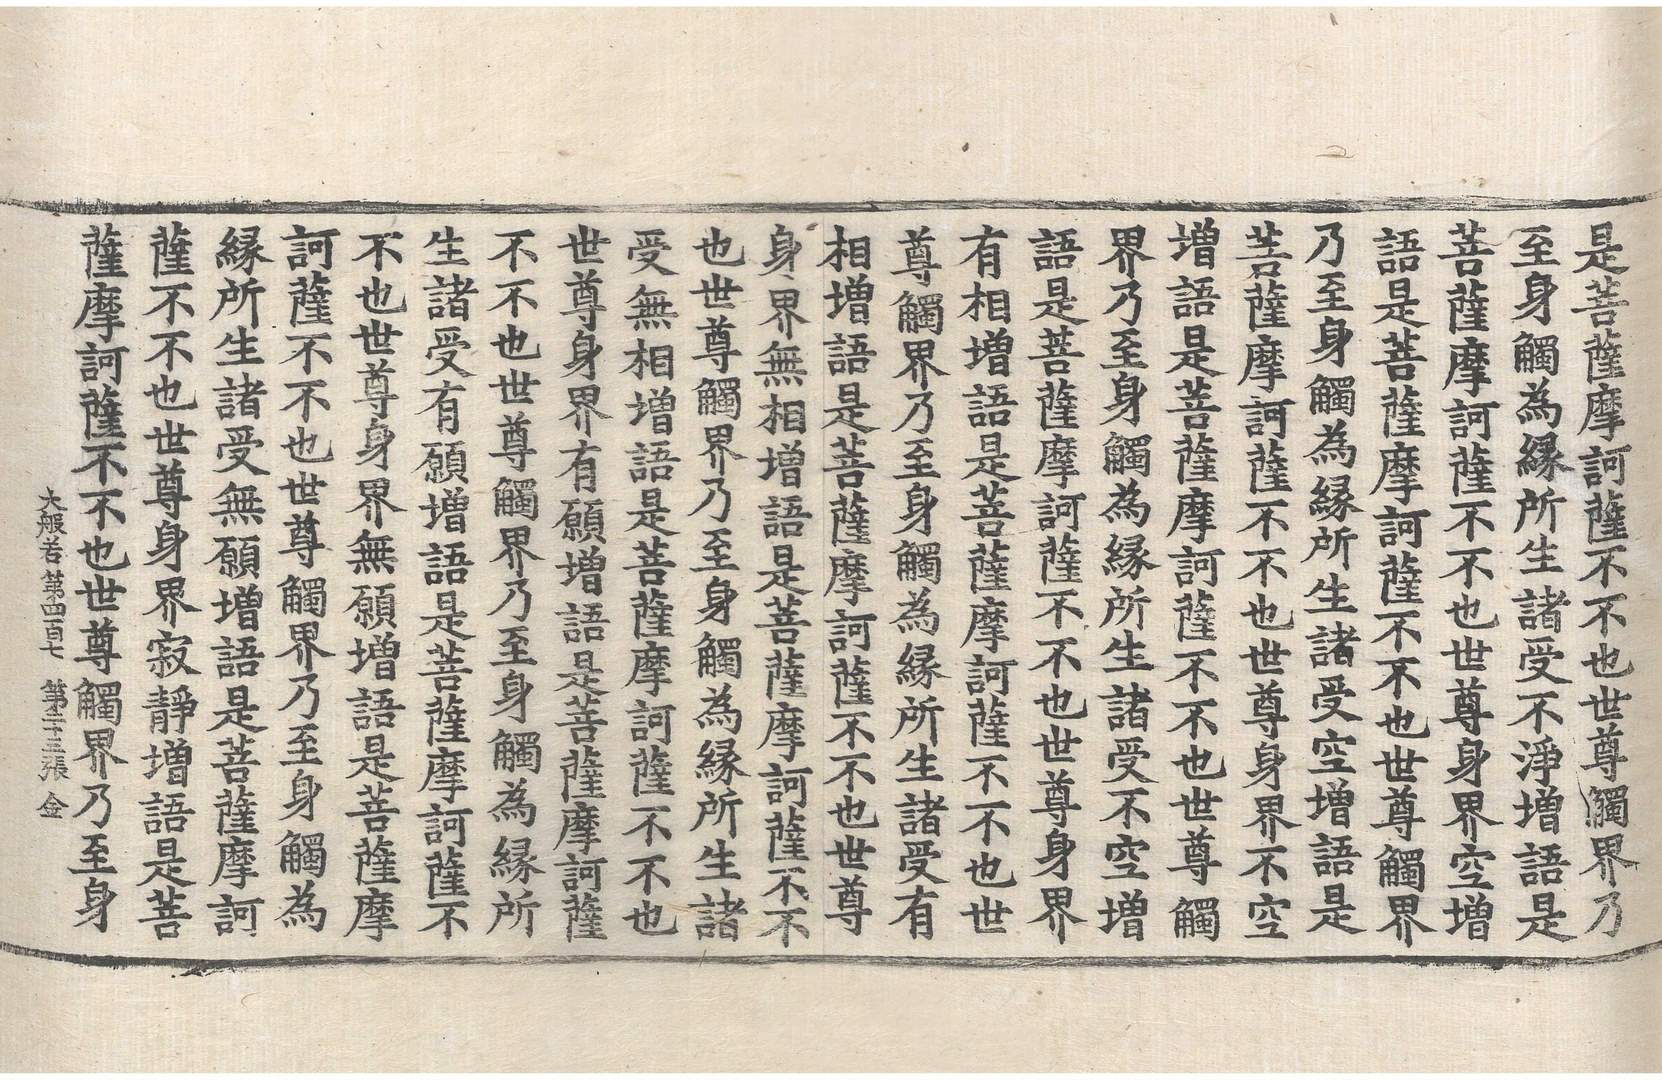 是菩薩摩訶薩不不也世尊觸界乃
至身觸為縁所生諸受不淨増語是
菩薩摩訶薩不不也世尊身界空増
語是菩薩摩訶薩不不也世尊觸界
乃至身觸為縁所生諸受空増語是
菩薩摩訶薩不不也世尊身界不空
増語是菩薩摩訶薩不不也世尊觸
界乃至身觸為縁所生諸受不空増
語是菩薩摩訶薩不不也世尊身界
有相増語是菩薩摩訶薩不不也世
尊觸界乃至身觸為縁所生諸受有
相増語是菩薩摩訶薩不不也世尊
身界無相増語是菩薩摩訶薩不不
也世尊觸界乃至身觸為縁所生諸
受無相増語是菩薩摩訶薩不不也
世尊身界有願増語是菩薩摩訶薩
不不也世尊觸界乃至身觸為縁所
生諸受有願増語是菩薩摩訶薩不
不也世尊身界無願増語是菩薩摩
訶薩不不也世尊觸界乃至身觸為
縁所生諸受無願増語是菩薩摩訶
薩不不也世尊身界寂靜増語是菩
薩摩訶薩不不也世尊觸界乃至身
大般若第四百七 第二十三張 金